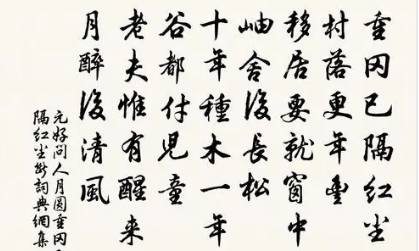 重冈已隔红尘
村落更年豊
移居要就窗中
岫舍後長松
十年種木一年
谷都付児童
老夫惟有醒来
月醉後清風
元好问人月圆重冈
隔红尘断詞典網集